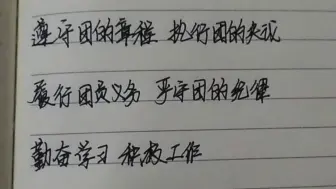 遵守团的章程 执行团的决议
履行团员义务 严守团的纪律
勤奋学习 积极工作